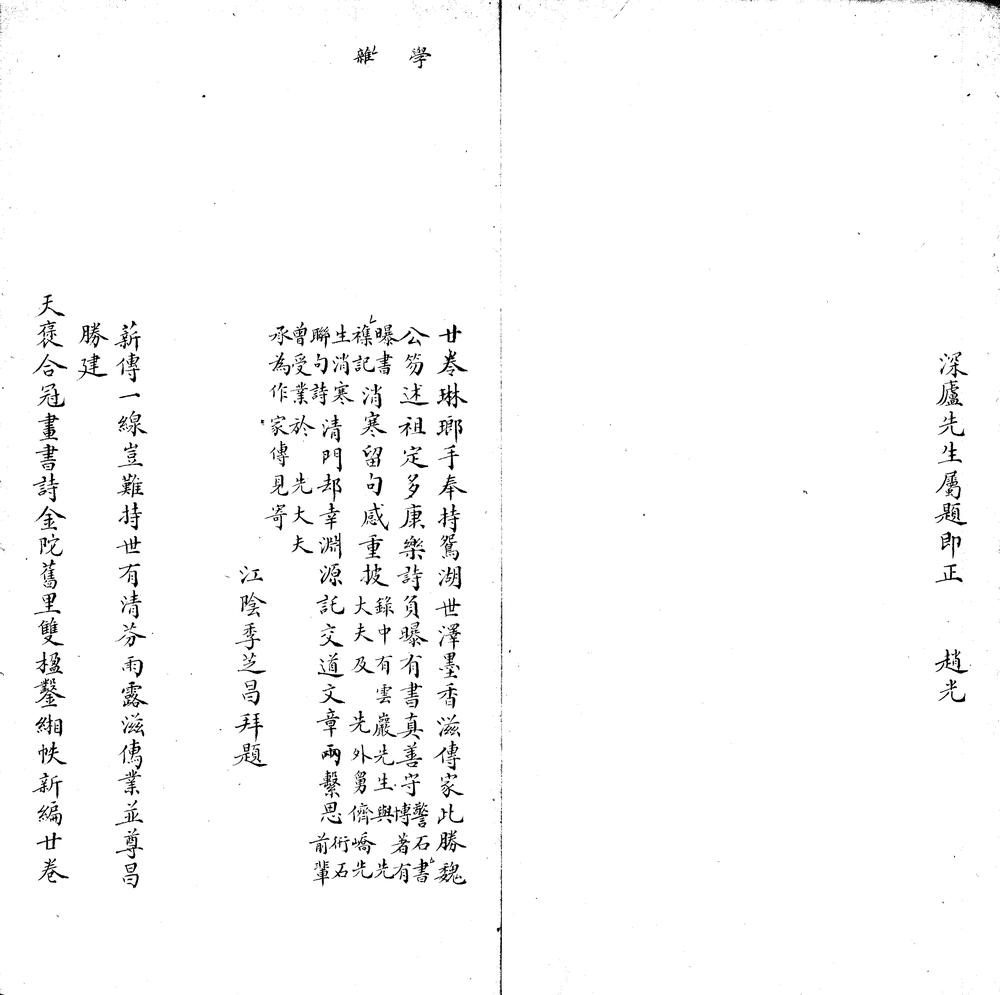 深廬先生屬題即正　趙光
學
雜
廿卷琳瑯手奉持鴛湖世澤墨香滋傳家此勝魏
公笏述祖定多康樂詩負曝有書真善守
警石書
博著有
曝書
襍記
消寒留句感重披
錄中有雲巖先生與先
大夫及　先外舅儕嶠先
生消寒
聯句詩
清門却幸淵源託交道文章兩繫思
衎石
前輩
曾受業於　先大夫
承為作家傳見寄
江陰季芝昌拜題
薪傳一線豈難持世有清芬雨露滋傳業並尊昌
勝建
天褒合冠畫書詩金陀舊里雙楹鑿緗帙新編廿卷